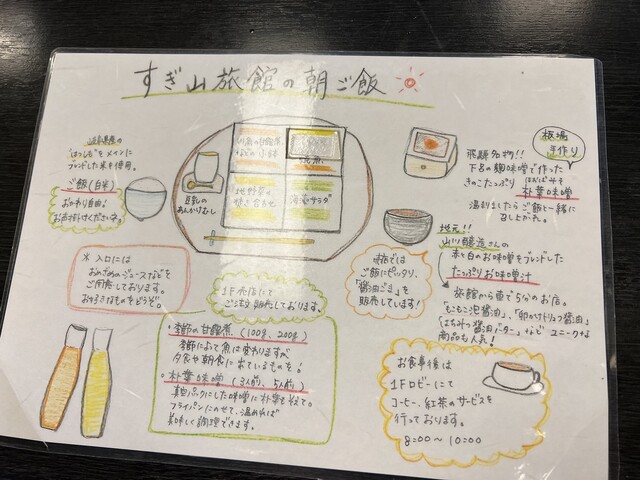 すぎ山旅館の朝ご飯
岐阜県産の
"はつしも"をメインに
ブレンドした米を使用。
ご飯(白米)
おかわり自由!
お声掛けくださいネ。
豆乳の
あんかけむし
海藻サラダ
板場
手作り
飛騨名物!!
下呂の麹味噌で作った
きのこたっぷり
ほおばみそ
朴葉味噌
温まりましたらご飯と一緒に
召し上がれ。
地元!!
山川醸造さんの
赤と白のお味噌をブレンドした
たっぷりお味噌汁
旅館から車で5分のお店。
「ももこ池醤油」、「卵のけりっプ醤油」
「はちみつ醤油バター」など ユニークな
商品も人気!
売店では
ご飯にピッタリ、
「醤油ごま」を
販売しています!
※入口には
おめざめのジュースなどを
ご用意しております。
お好きなものをどうぞ。
1F売店にて
ごちそう販売しております。
・季節の甘露煮 (100g、200g)
季節によって魚は変わりますが
夕食や朝食に出ているものを!
・朴葉味噌 (3人前、5人前)
真空パックにした味噌に朴葉を添えて。
フライパンにのせて、温めれば
美味しく調理できます。
お食事後は
1Fロビーにて
コーヒー、紅茶のサービスを
行っております。
8:00〜10:00